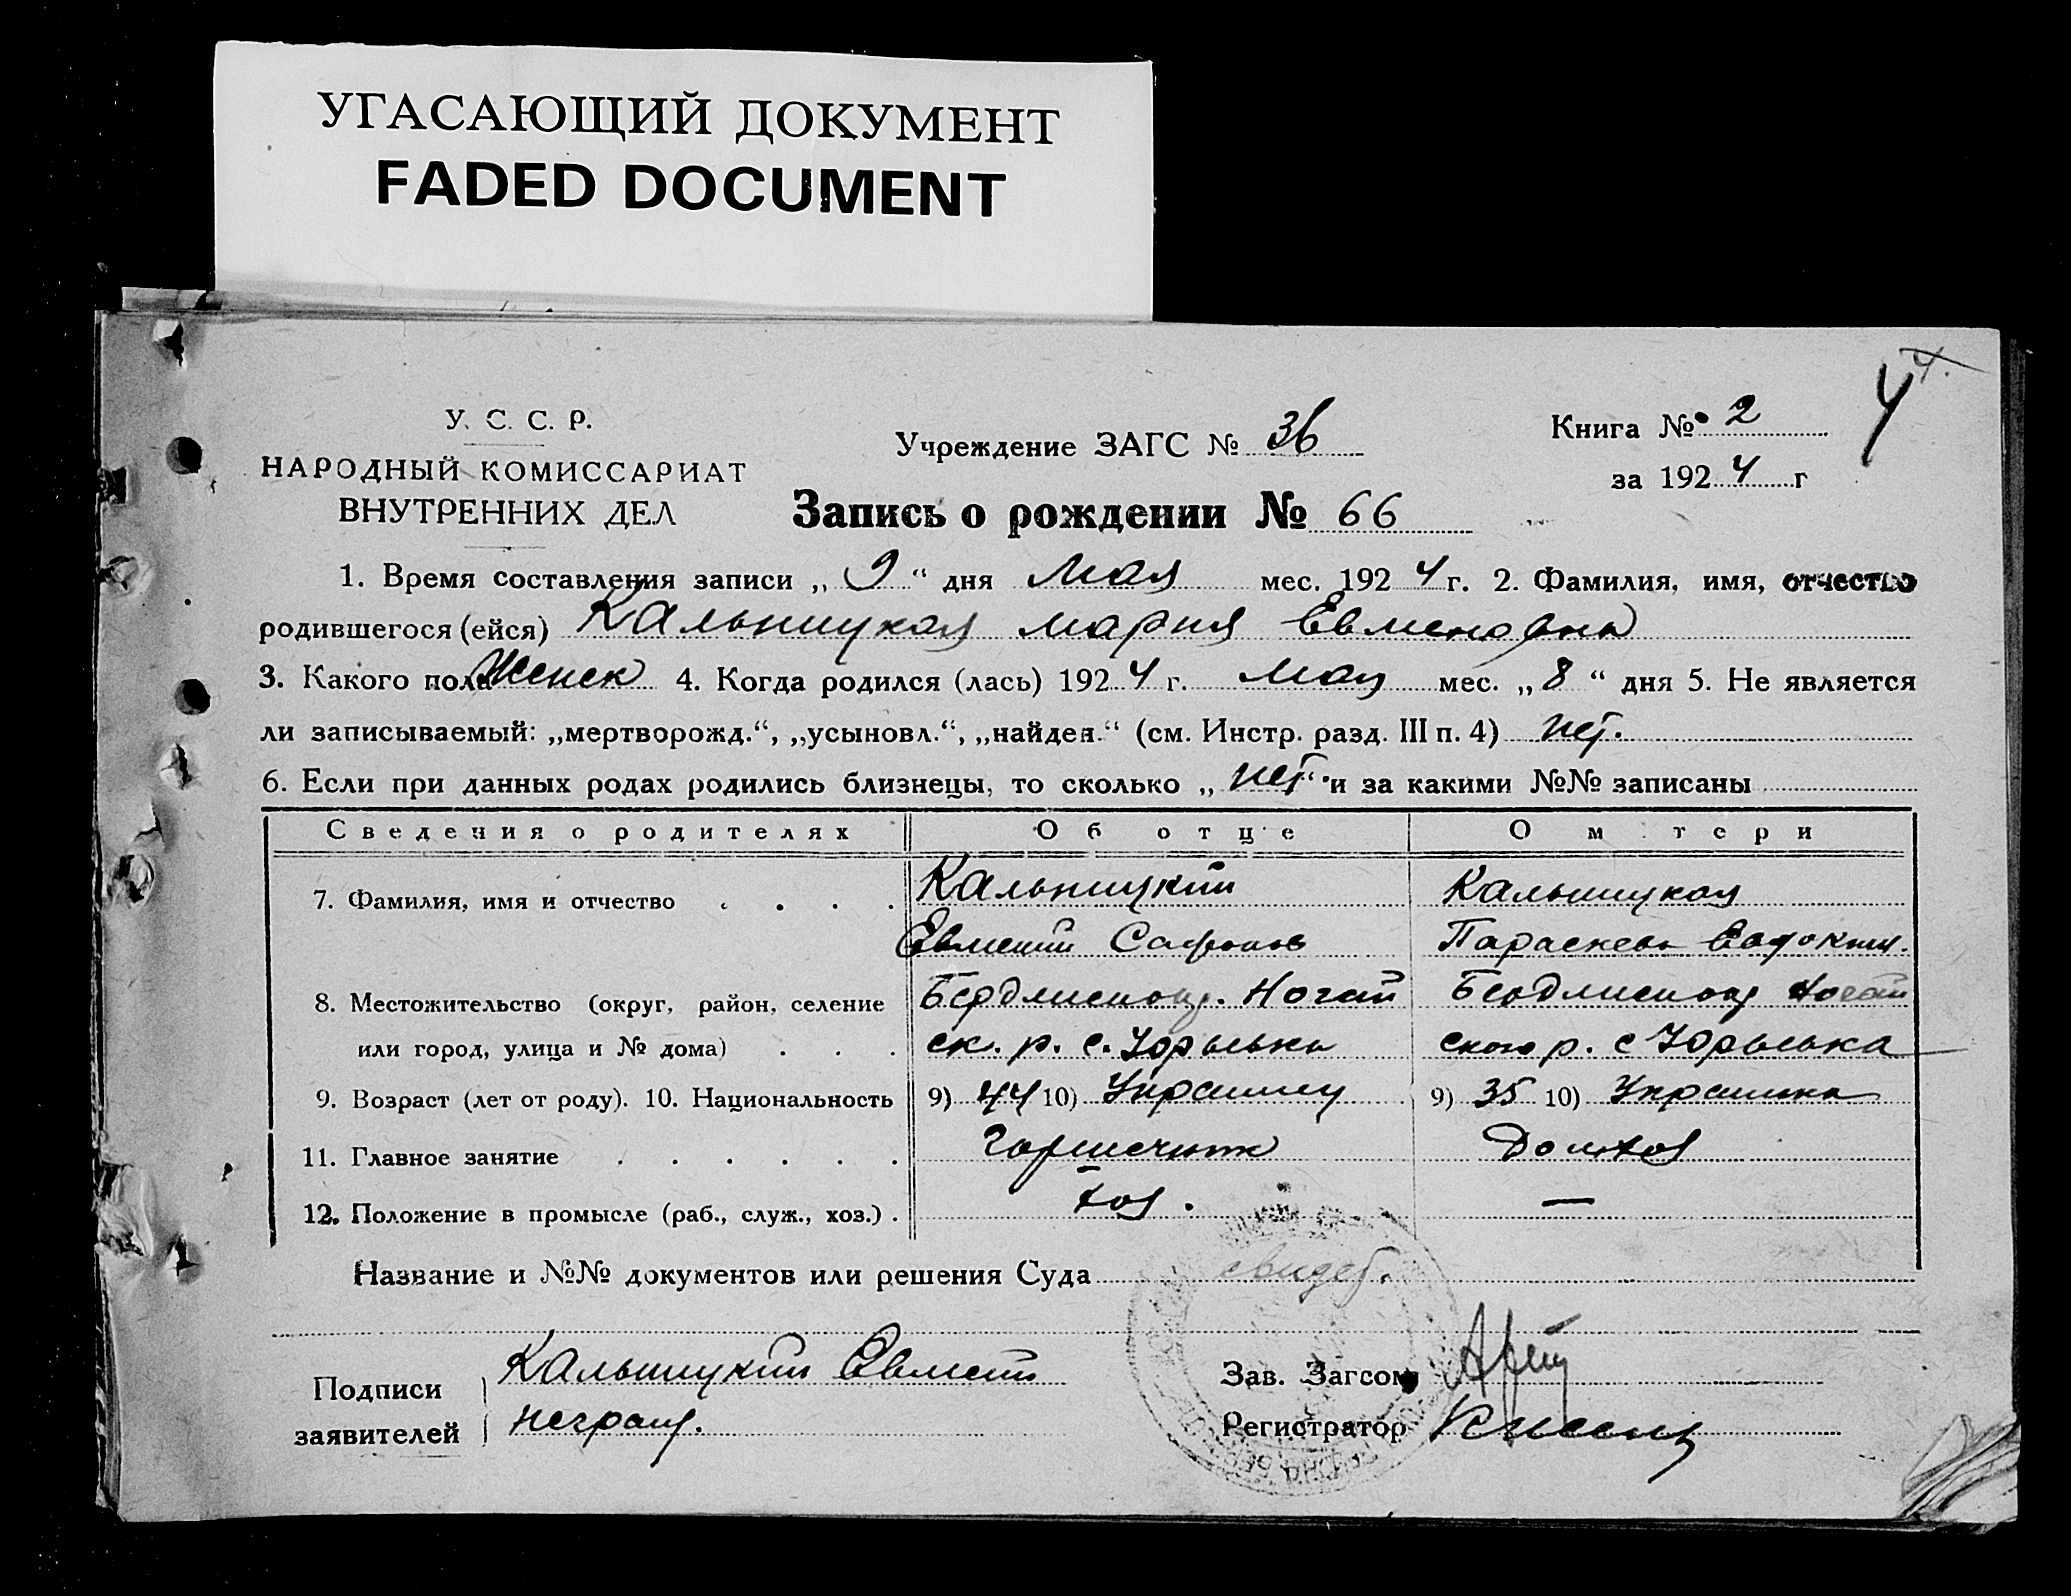 УГАСАЮЩИЙ ДОКУМЕНТ
FADED DOCUMENT
4.
4
У. С. С. Р.
НАРОДНЫЙ КОМИССАРИАТ
ВНУТРЕННИХ ДЕЛ
Учреждение ЗАГС № 36
Книга № 2
за 1924 г
Запись о рождении № 66
1. Время составления записи „ 9 “ дня Мая мес. 1924 г. 2. Фамилия, имя, отчество
родившегося (ейся) Кальницкая Мария Евменовна
3. Какого пола Женск 4. Когда родился (лась) 1924 г. Мая мес. „ 8 “ дня 5. Не является
ли записываемый: „мертворожд.“, „усыновл.“, „найден.“ (см. Инстр. разд. III п. 4) нет.
6. Если при данных родах родились близнецы, то сколько „ нет “ и за какими №№ записаны
Сведения о родителях Об отце О матери
7. Фамилия, имя и отчество Кальницкий Кальницкая
Евмений Сафонов Параскева Евдоким.
8. Местожительство (округ, район, селение Ногай Ногай
или город, улица и № дома) ск. р. с. Юрьевка ского р. с Юрьевка
9. Возраст (лет от роду). 10. Национальность 9) 44 10) Украинец 9) 35 10) Украинка
11. Главное занятие Домхоз
12. Положение в промысле (раб., служ., хоз.) Хоз. —
Название и №№ документов или решения Суда свидет.
Подписи Кальницкий Евмений
заявителей неграм.
Зав. Загсом
Регистратор